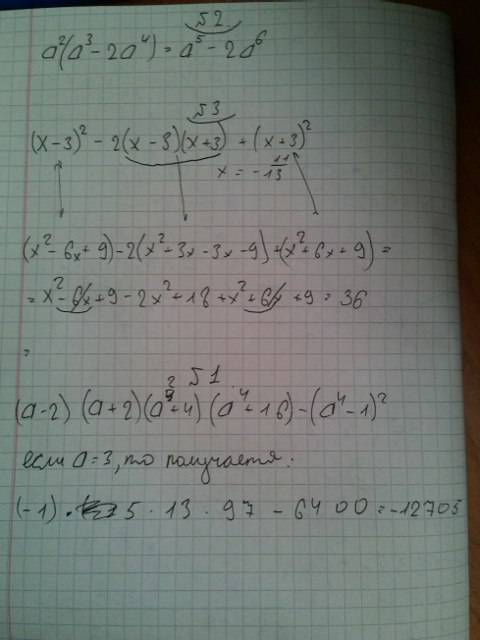 №2
a²(a³ - 2a⁴) = a⁵ - 2a⁶
№3
(x - 3)² - 2(x - 3)(x + 3) + (x + 3)²
x = -11/13
(x² - 6x + 9) - 2(x² + 3x - 3x - 9) + (x² + 6x + 9) =
= x² - 6x + 9 - 2x² + 18 + x² + 6x + 9 = 36
=
№1
(a - 2) (a + 2)(a² + 4) (a⁴ + 16) - (a⁴ - 1)²
если a = 3, то получается:
(-1) · 5 · 13 · 97 - 6400 = -12705